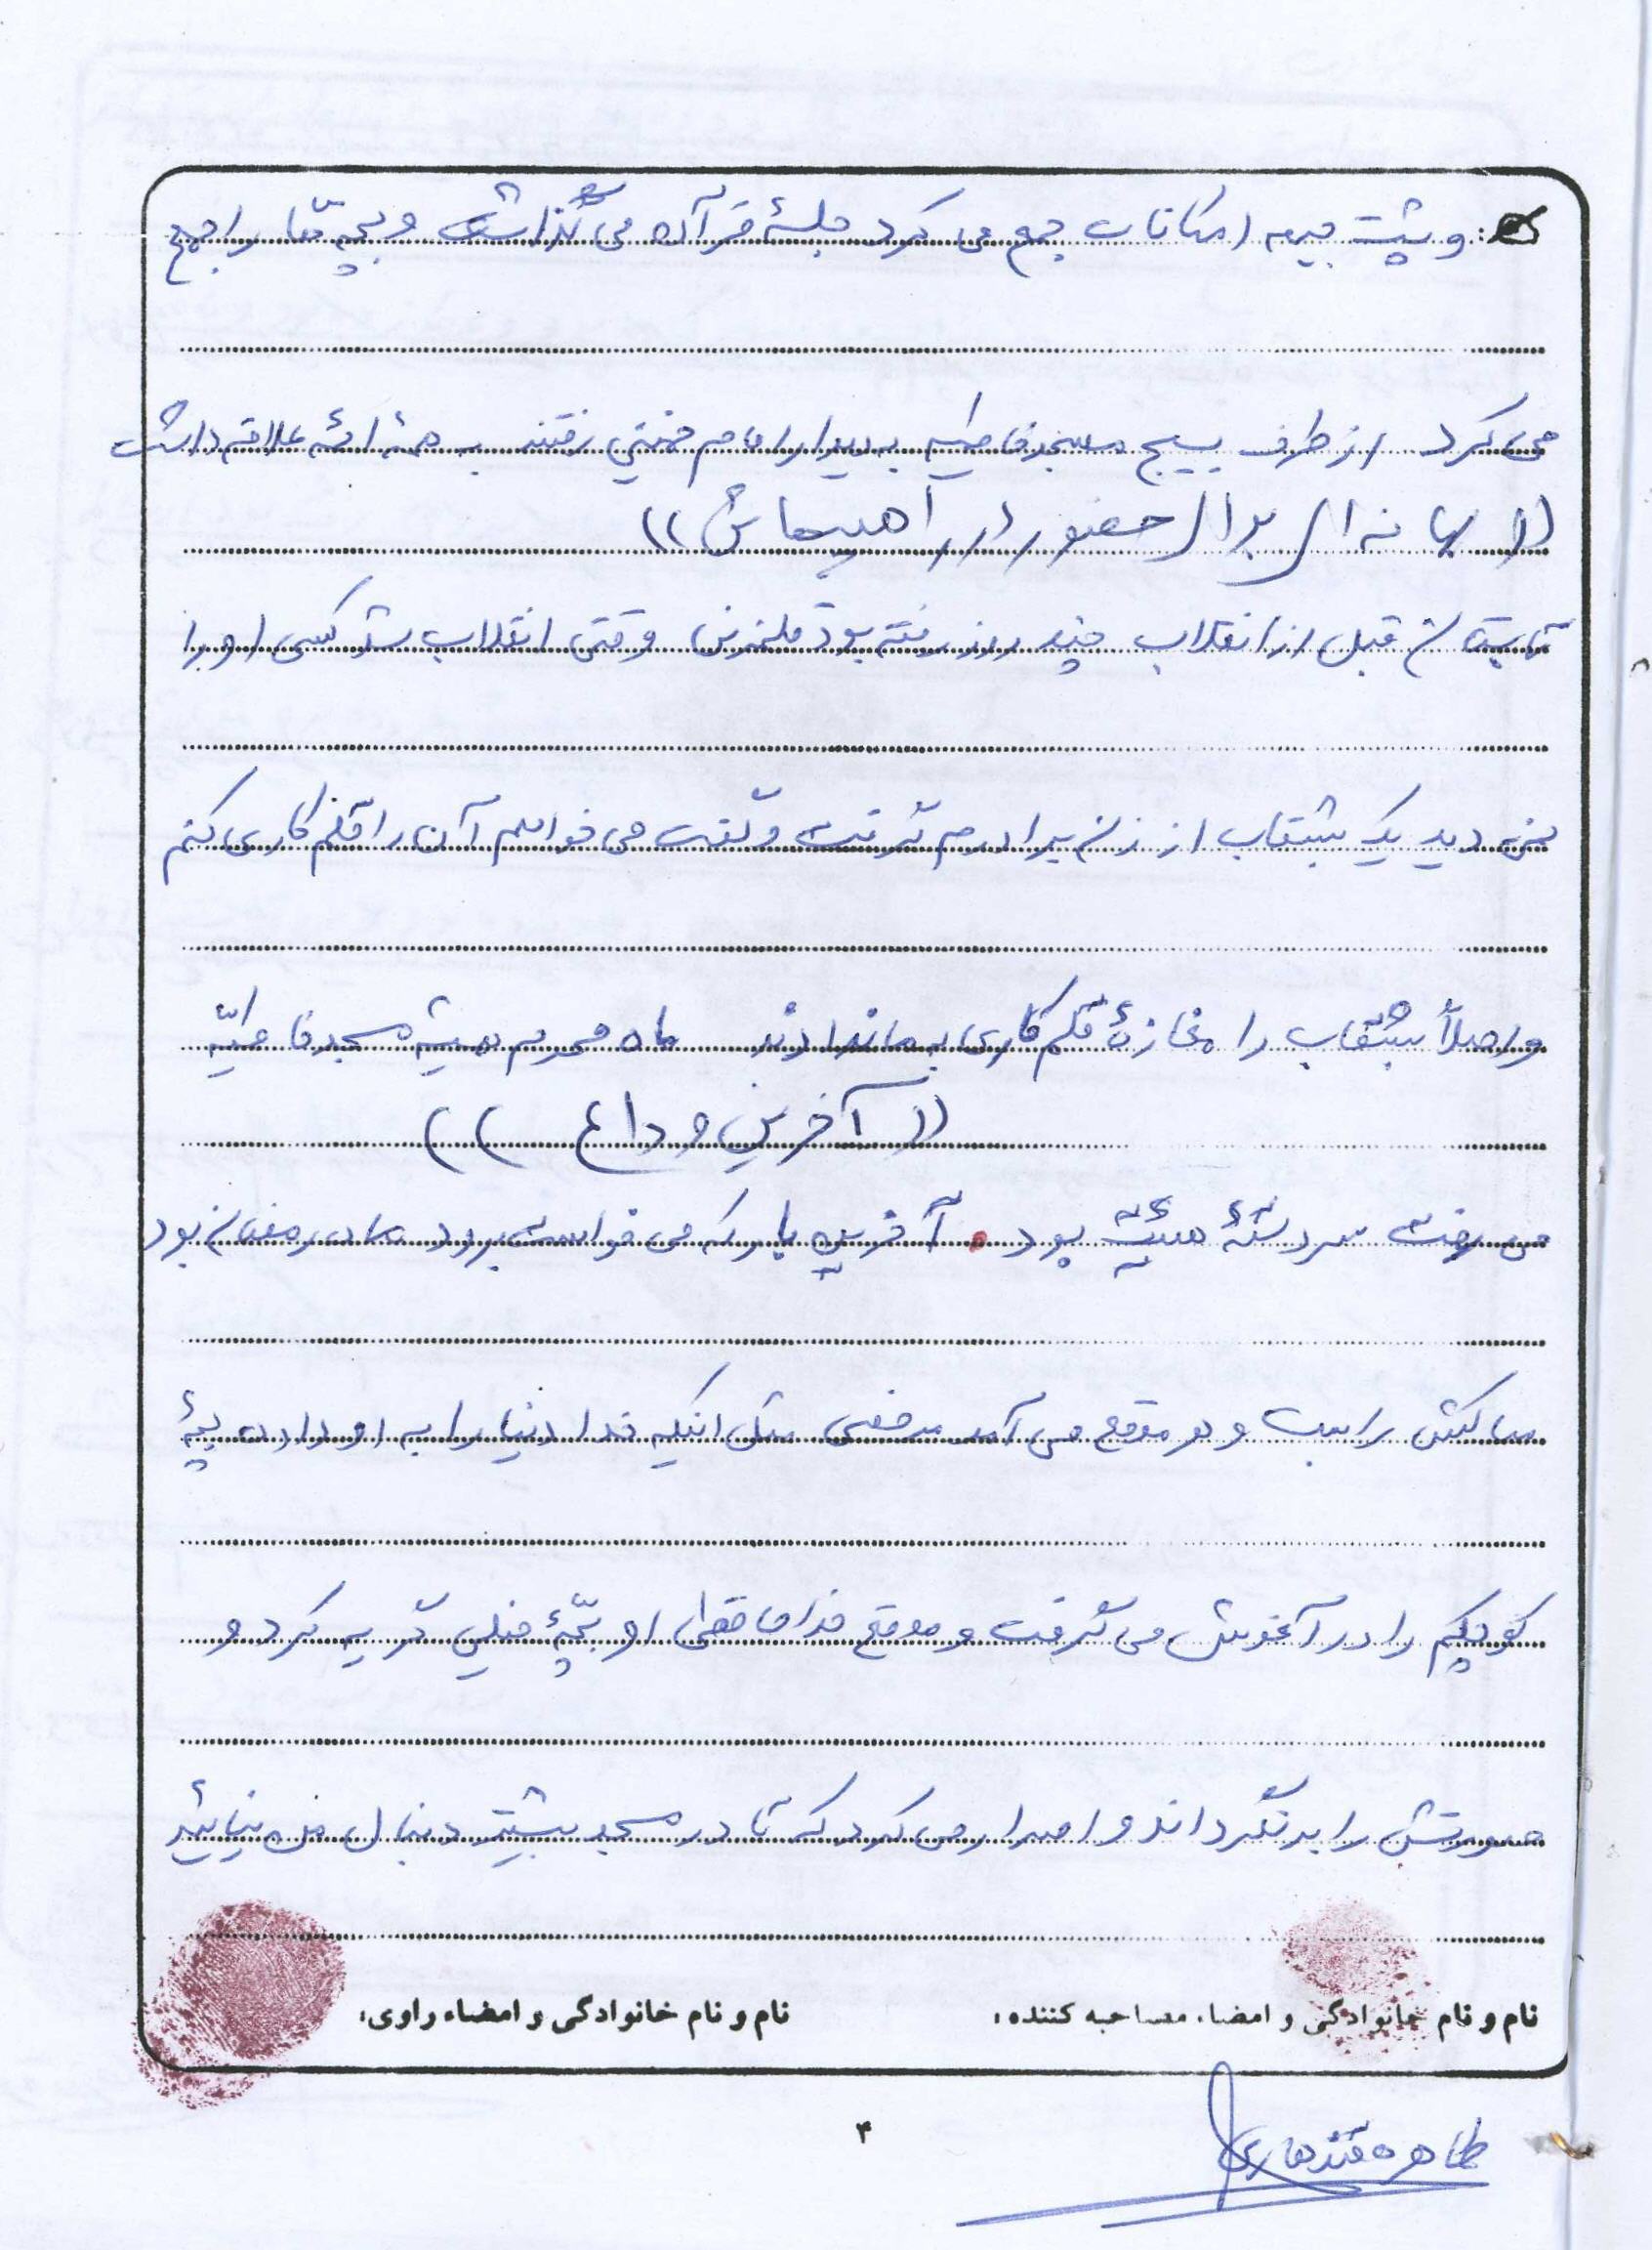 و پشت جبهه امکانات جمع می کرد جلسهٔ قرآن می گذاشت و بچّه ها را جمع
می کرد از طرف بسیج مسجد فاطمیه به دیدار امام خمینی رفتند به همهٔ ائمه علاقه داشت
(( بهانه ای برای حضور در راهپیمائی ))
تابستان قبل از انقلاب چند روز رفته بود قلمزنی وقتی انقلاب شد کسی او را
نمی دید یک بشقاب از زن برادرم گرفت و گفت می خواهم آن را قلم کاری کنم
و اصلاً بشقاب را مغازهٔ قلم کاری به ما ندادند ماه محرم همیشه مسجد فاطمیّه
(( آخرین وداع ))
می رفت سردستهٔ هیئت بود . آخرین بار که می خواست برود ماه رمضان بود
ساکش را بست و هر موقع می آمد مرخصی مثل اینکه خدا دنیا را به او داده بچهٔ
کوچکم را در آغوش می گرفت و موقع خداحافظی او بچّهٔ خیلی گریه کرد و
صورتش را برنگرداند و اصرار می کرد که تا در مسجد بیشتر دنبال من نیائید
نام و نام خانوادگی و امضاء مصاحبه کننده: نام و نام خانوادگی و امضاء راوی:
۴
طاهره قندهاری